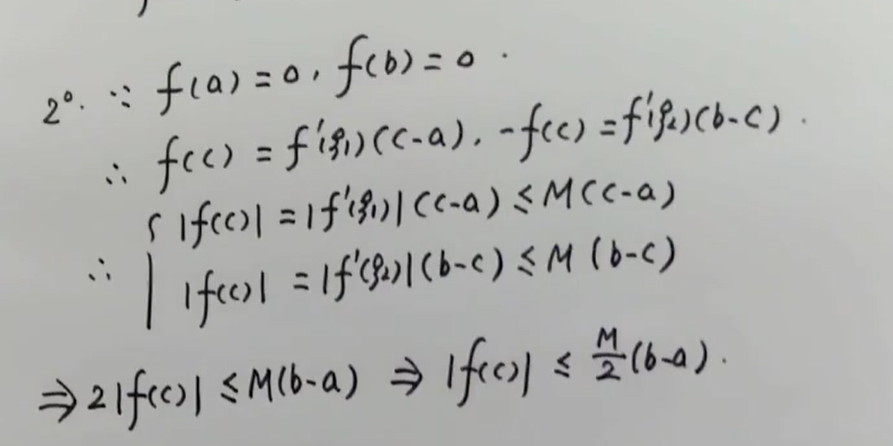 2°. ∵ f(a) = 0, f(b) = 0.
∴ f(c) = f'(ξ₁)(c-a), -f(c) = f'(ξ₂)(b-c).
∴ { |f(c)| = |f'(ξ₁)|(c-a) ≤ M(c-a)
|f(c)| = |f'(ξ₂)|(b-c) ≤ M(b-c)
⇒ 2|f(c)| ≤ M(b-a) ⇒ |f(c)| ≤ M/2 (b-a).